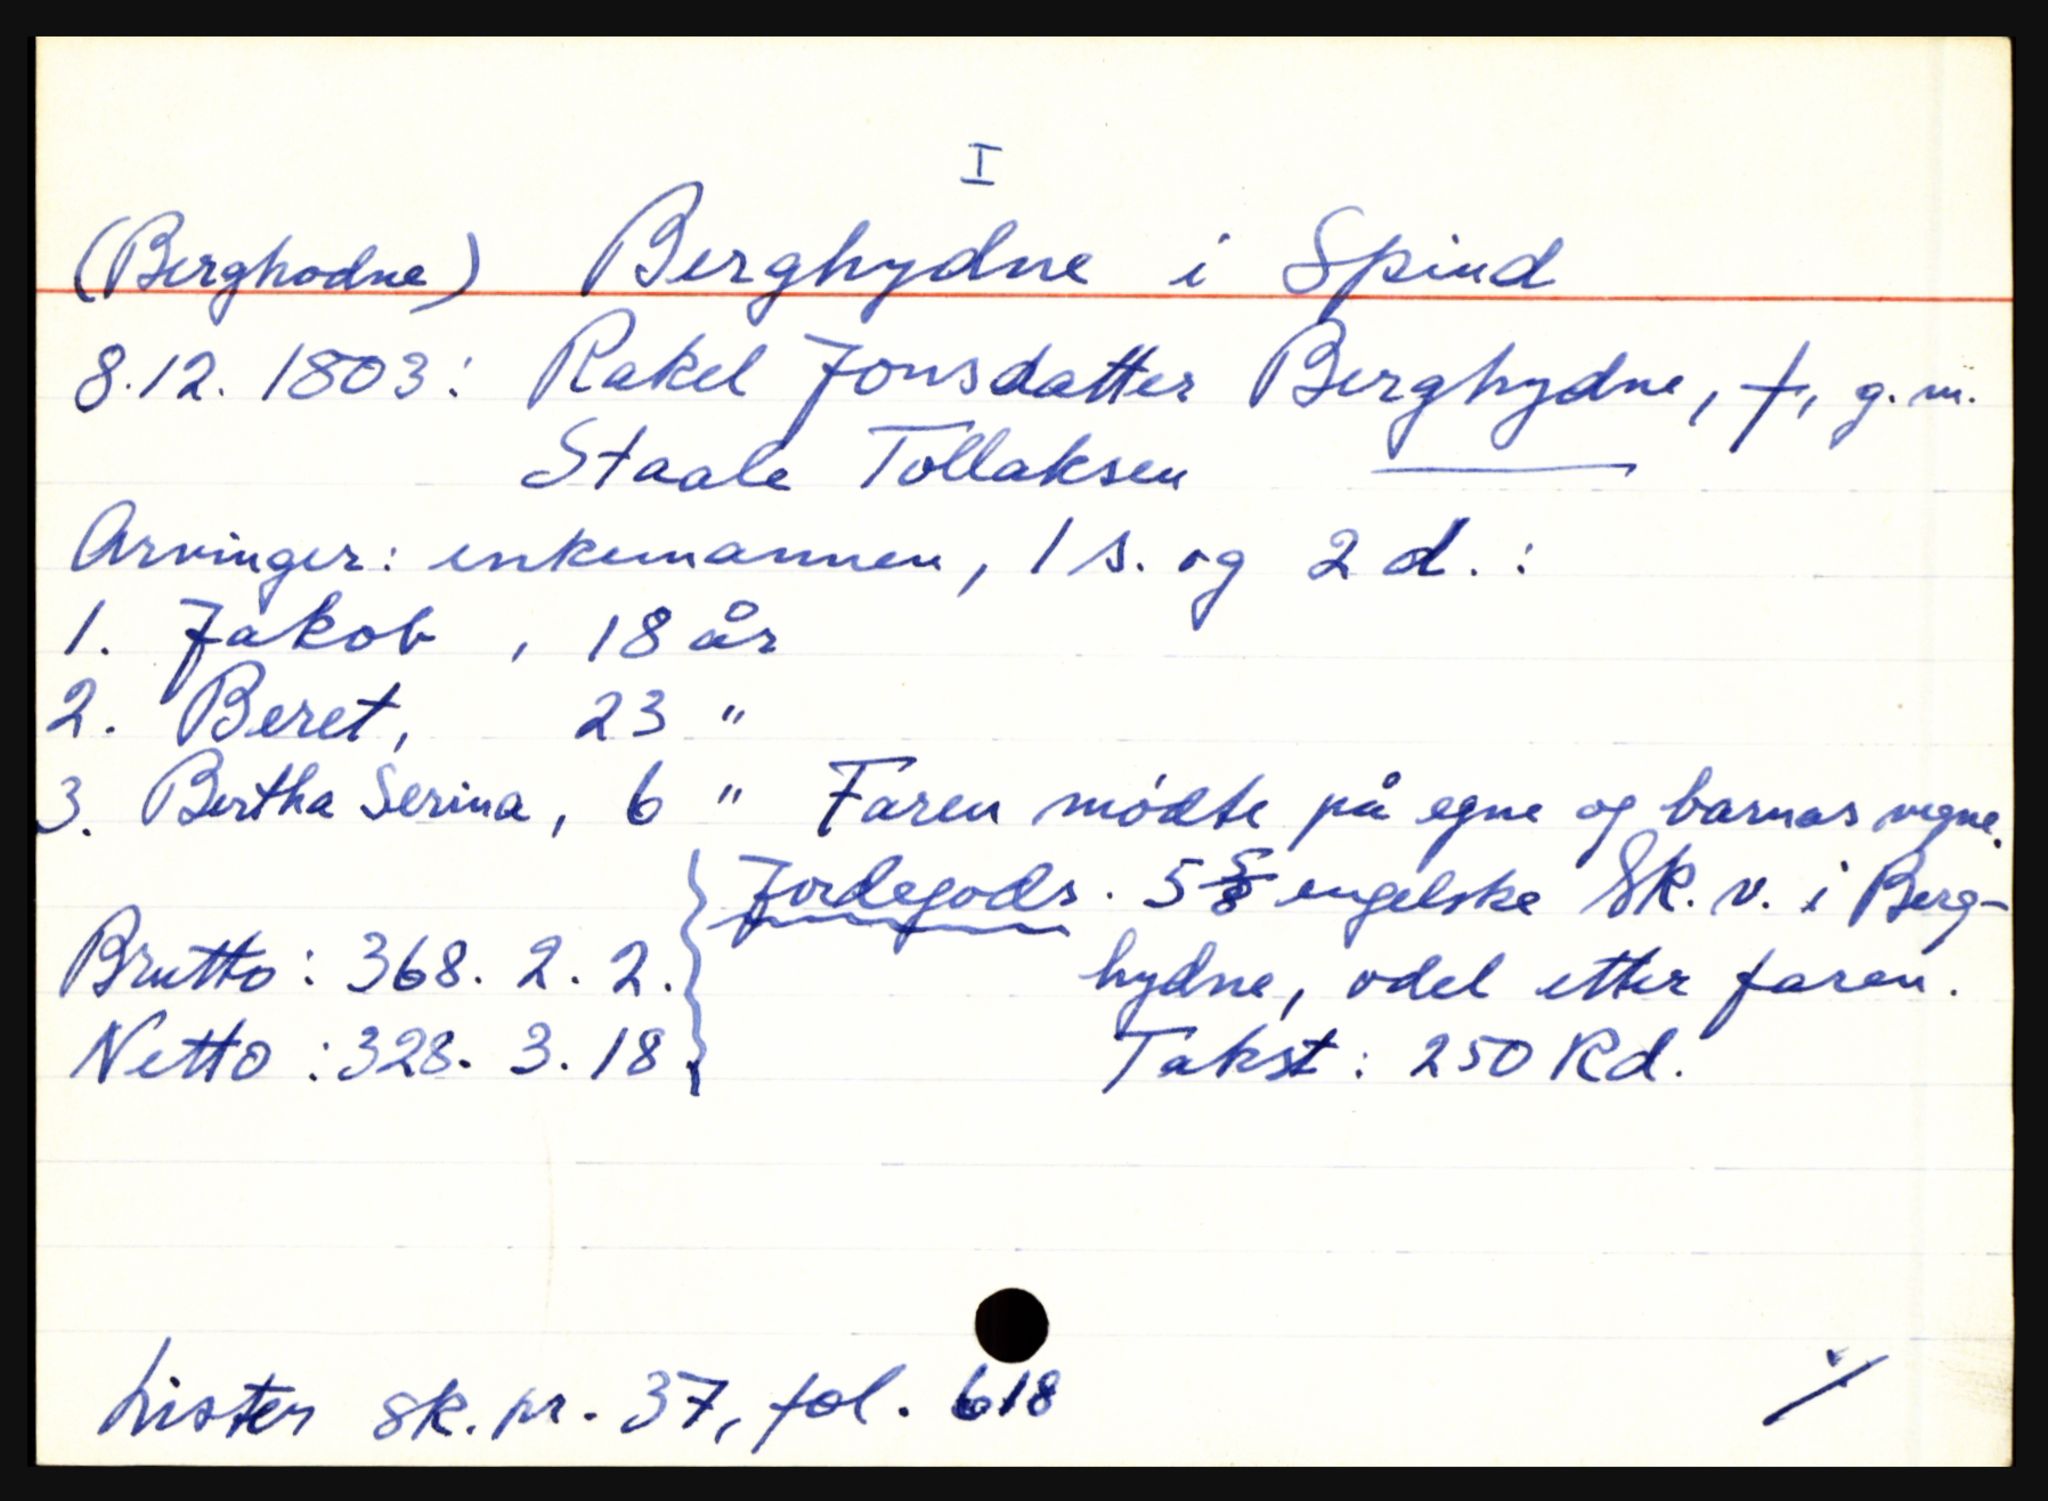 I
(Berghodne) Berghydne i Spind
8.12. 1803: Rakel Jonsdatter Berghydne, †, g.m.
Staale Tollaksen ———
Arvinger: enkemannen, 1 s. og 2 d.:
1. Jakob, 18 år
2. Beret, 23 "
3. Bertha Serina, 6 " Faren mødte på egne og barnas vegne.
Jordegods. 5 5/8 engelske Sk. v. i Berg-
Brutto: 368. 2. 2. hydne, odel etter faren.
Netto: 328. 3. 18. Takst: 250 Rd.
Lister sk. pr. 37, fol. 618